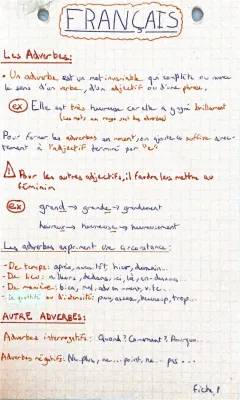 FRANÇAIS
Les Adverbes:
- Un adverbe est un mot invariable qui complète ou nuance
le sens d'un verbe, d'un adjectif ou d'une phrase.
ex Elle est très heureuse car elle a gagné brillamment
(les mots en rouge sont les adverbes)
Pour former les adverbes en -ment, on ajoute ce suffixe direc-
tement à l'adjectif terminé par "e"
⚠ Pour les autres adjectifs, il faudra les mettre au
féminin
ex grand → grande → grandement
heureux → heureuse → heureusement
Les adverbes expriment une circonstance:
- De temps: après, aussitôt, hier, demain...
- De lieu: ailleurs, dedans, ici, là, en-dessous
- De manière: bien, mal, adv en -ment, vite...
- De quantité ou d'intensité: peu, assez, beaucoup, trop...
AUTRE ADVERBES:
Adverbes interrogatifs: Quand? Comment? Pourquoi...
Adverbes négatifs: Ne plus, ne... point, ne... pas...
fiche 1